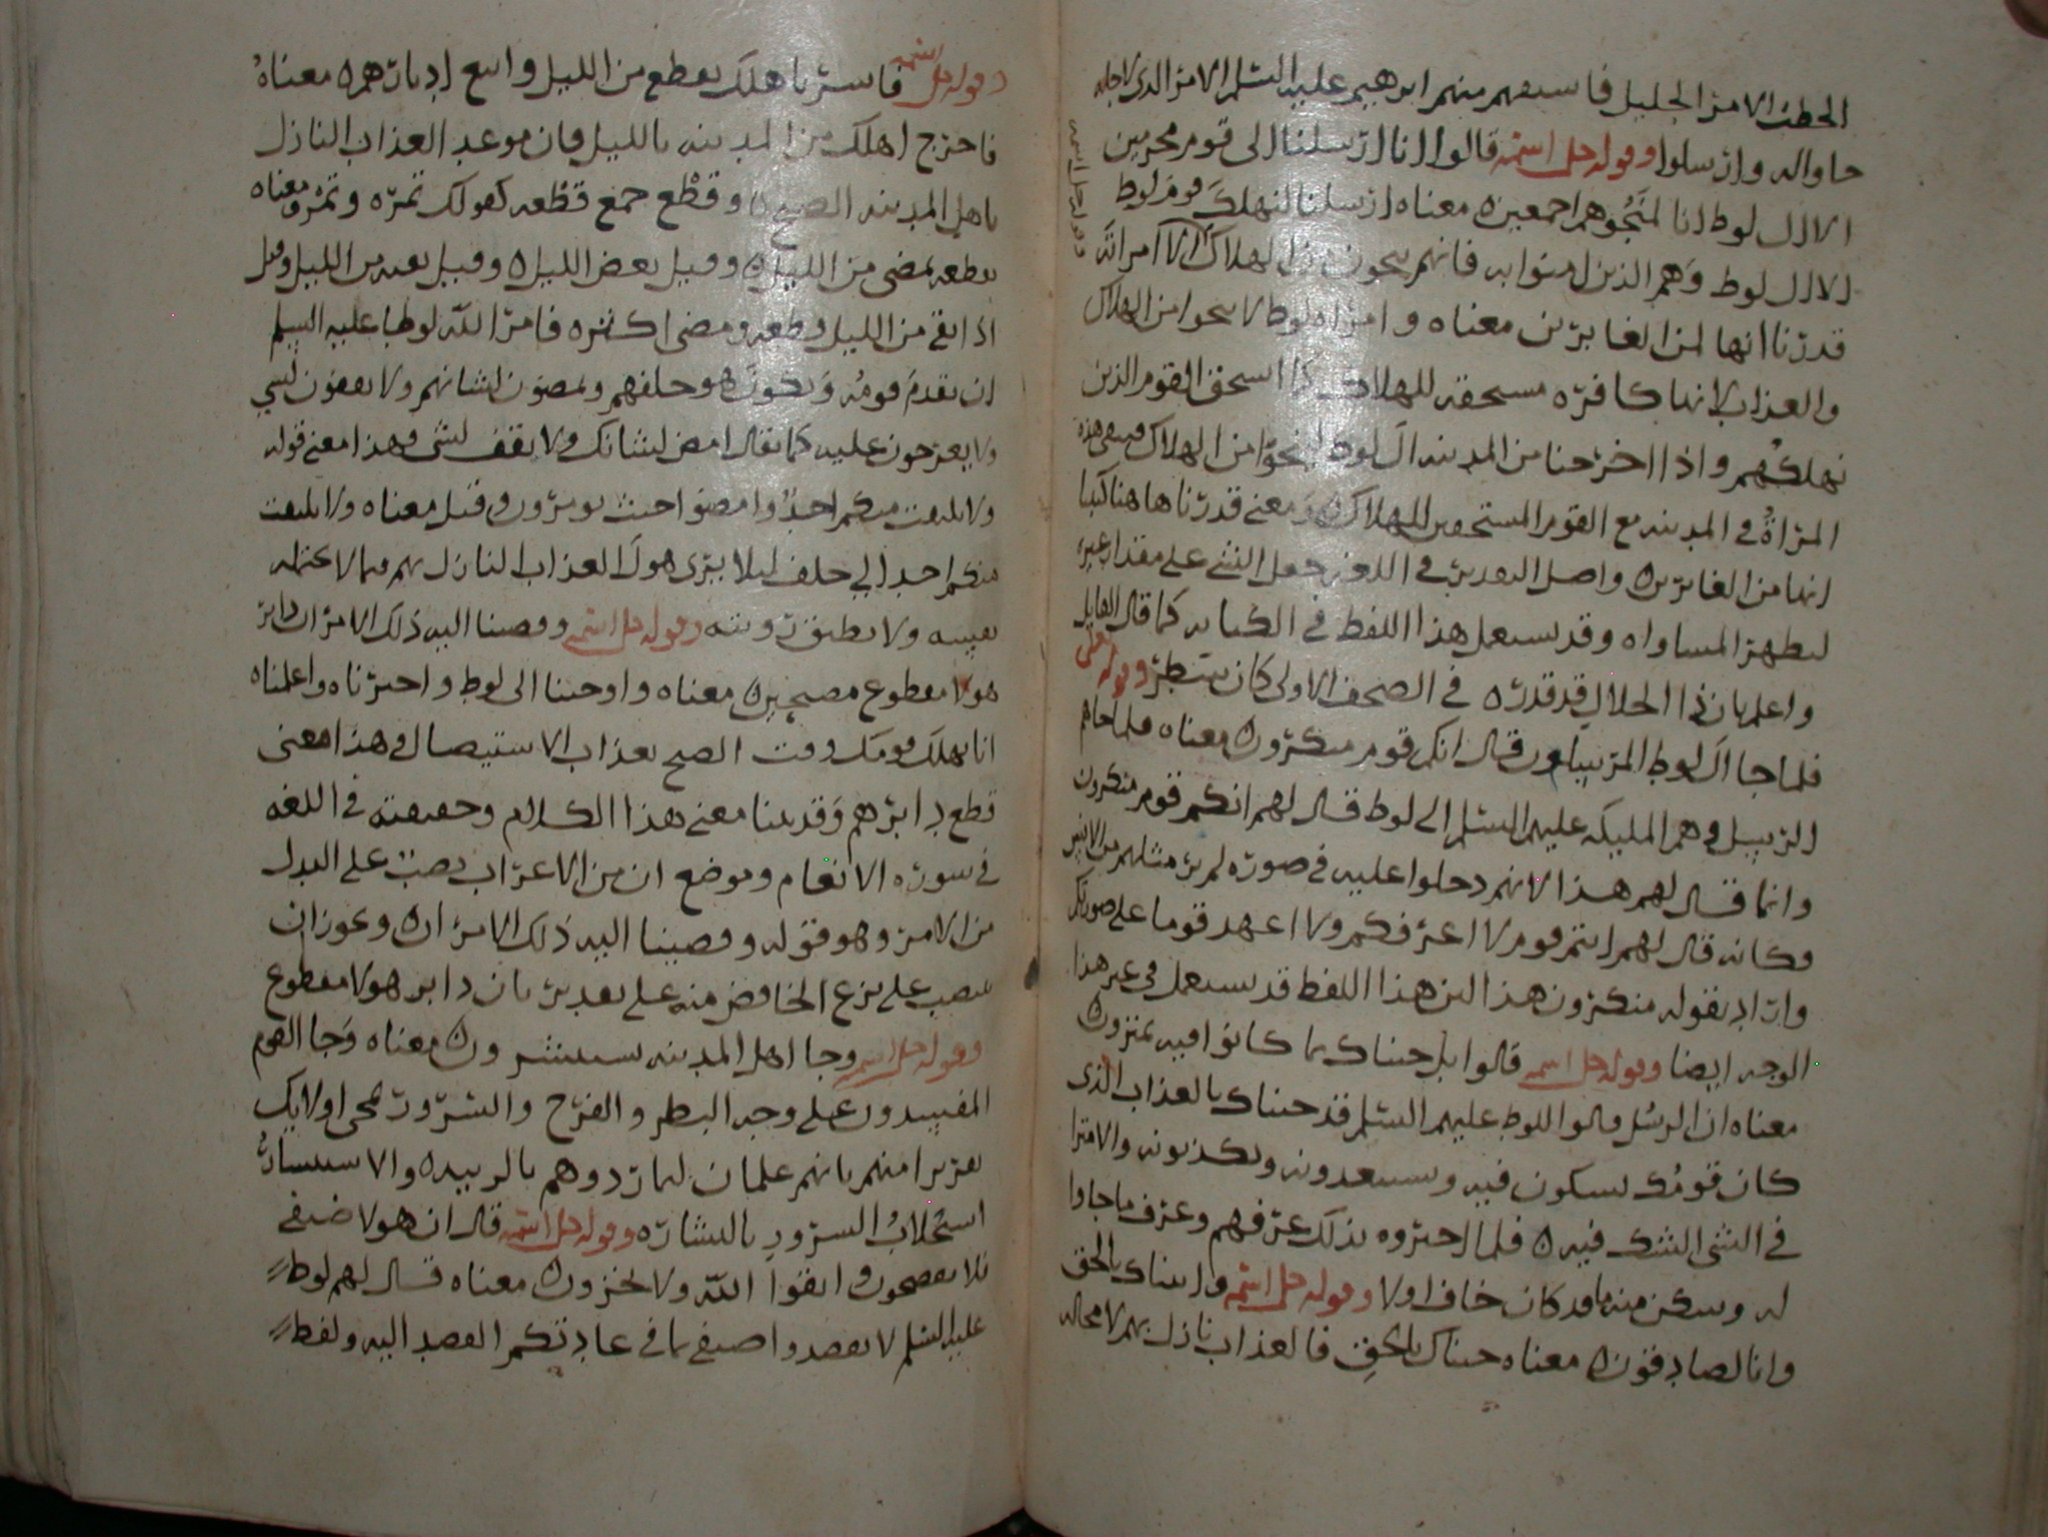 الخطب الامر الجليل فاستفهم منهم ابرهيم عليه السلم الامر الذي لاجله
جاوا له وارسلوا وقوله جل اسمه قالوا انا ارسلنا الى قوم مجرمين
الا ال لوط انا لمنجوهم اجمعين معناه ارسلنا لنهلك قوم لوط
الا ال لوط وهم الذين امنوا به فانهم ينجون من الهلاك الا امراته
قدرنا انها لمن الغابرين معناه وامراه لوط لا ينجوا من الهلاك
والعذاب لانها كافره مستحقه للهلاك كما استحق القوم الذين
نهلكهم واذا اخرجنا من المدينه ال لوط لينجوا من الهلاك فتبقى هذه
المراة في المدينه مع القوم المستحقين للهلاك ومعنى قدرنا هاهنا كتبنا
انها من الغابرين واصل التقدير في اللغه جعل الشي على مقدار غيره
ليظهر المساواه وقد يستعمل هذا اللفظ في الكتابه كما قال القايل
واعلم بان ذا الجلال قد قدره في الصحف الاولى كان سطر وقوله تعالى
فلما جا ال لوط المرسلون قال انكم قوم منكرون معناه فلما جاهم
الرسل وهم المليكه عليهم السلم الى لوط قال لهم انكم قوم منكرون
وانما قال لهم هذا لانهم دخلوا عليه في صوره لم ير مثلهم من الانس
فكانه قال لهم انتم قوم لا اعرفكم ولا اعهد قوما على صورتكم
واراد بقوله منكرون هذا لان هذا اللفظ قد يستعمل في غير هذا
الوجه ايضا وقوله جل اسمه قالوا بل جيناك بما كانوا فيه يمترون
معناه ان الرسل قالوا للوط عليهم السلم قد جيناك بالعذاب الذي
كان قومك يشكون فيه ويستبعدونه ويكذبونه والامترا
في الشي الشك فيه فلما اخبروه بذلك عرفهم وعرف ما جاوا
له وسكن منه ما قد كان خاف اولا وقوله جل اسمه واتيناك بالحق
وانا لصادقون معناه جيناك بالحق فالعذاب نازل بهم لا محاله
وقوله جل اسمه فاسر باهلك بقطع من الليل واتبع ادبارهم معناه
فاخرج اهلك من المدينه بالليل فان موعد العذاب النازل
باهل المدينه الصبح وقطع جمع قطعه كقولك تمره وتمر ومعناه
بقطعه تمضي من الليل وقيل بعض الليل وقيل بقيه من الليل وقيل
اذا بقي من الليل قطعه ومضى اكثره فامر الله لوطا عليه السلم
ان يقدم قومه ويكون هو خلفهم ويمضون لشانهم ولا يقفون لشي
ولا يعرجون عليه كما يقال امض لشانك ولا يقف لشي وهذا معنى قوله
ولا يلتفت منكم احد وامضوا حيث تومرون وقيل معناه ولا يلتفت
منكم احد الي خلف ليلا يرى هول العذاب النازل بهم مما لا يحتمله
نفسه ولا يطيق رويته وقوله جل اسمه وقضينا اليه ذلك الامر ان دابر
هولا مقطوع مصبحين معناه واوحينا الى لوط واخبرناه واعلمناه
انا نهلك قومك وقت الصبح بعذاب الاستيصال وهذا معنى
قطع دابرهم وقد بينا معنى هذا الكلام وحقيقته في اللغه
في سوره الانعام وموضع ان من الاعراب نصب على البدل
من الامر وهو قوله وقضينا اليه ذلك الامر ان ويجوز ان
ينصب على نزع الخافض منه على تقدير بان دابر هولا مقطوع
وقوله جل اسمه وجا اهل المدينه يستبشرون معناه وجا القوم
المفسدون على وجه البطر والفرح والسرور لمجي اولايك
تقديرا منهم بانهم غلمان ليراودوهم بالريبه والاستبشار
استجلاب السرور بالبشاره وقوله جل اسمه قال ان هولا ضيفي
فلا تفضحون واتقوا الله ولا تخزون معناه قال لهم لوط
عليه السلم لا تقصدوا ضيفي بما في عادتكم القصد اليه ولفظ